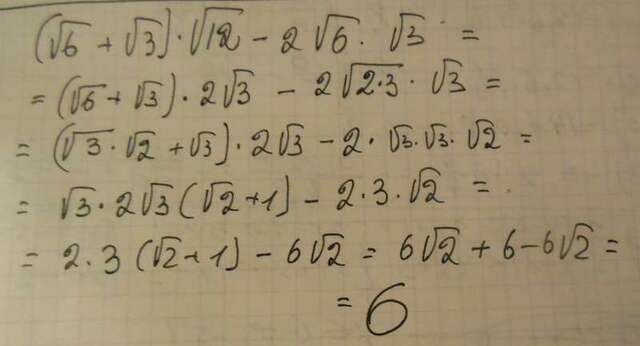 (√6 + √3) · √12 - 2 √6 · √3 =
= (√6 + √3) · 2√3 - 2√2·3 · √3 =
= (√3 · √2 + √3) · 2√3 - 2 · √3 · √3 · √2 =
= √3 · 2√3 (√2 + 1) - 2 · 3 · √2 =
= 2 · 3 (√2 + 1) - 6√2 = 6√2 + 6 - 6√2 =
= 6